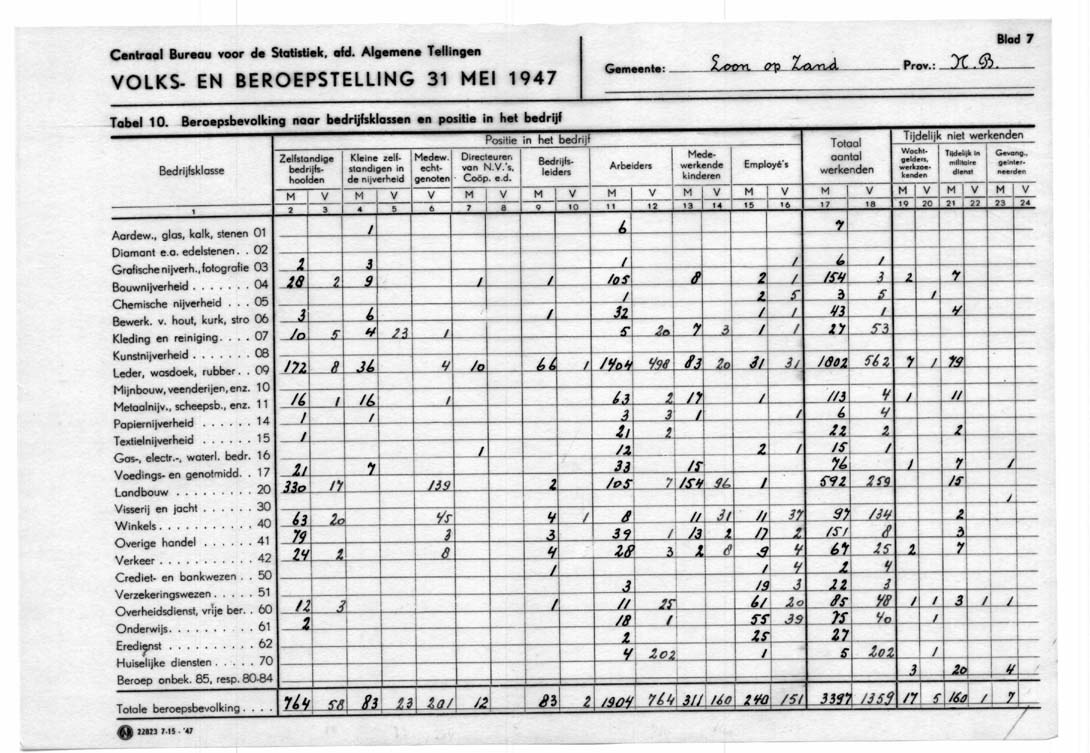 Centraal Bureau voor de Statistiek, afd. Algemene Tellingen
Blad 7
VOLKS- EN BEROEPSTELLING 31 MEI 1947
Gemeente: Loon op Zand Prov.: N.B.
Tabel 10. Beroepsbevolking naar bedrijfsklassen en positie in het bedrijf
Bedrijfsklasse Positie in het bedrijf Totaal aantal werkenden Tijdelijk niet werkenden
Zelfstandige bedrijfshoofden Kleine zelfstandigen in de nijverheid Medew. echtgenoten Directeuren van N.V.'s, Coöp. e.d. Bedrijfsleiders Arbeiders Medewerkende kinderen Employé's Wachtgelders, werkzoekenden Tijdelijk in militaire dienst Gevang., geïnterneerden
M V M V V M V M V M V M V M V M V M V M V M V
1 2 3 4 5 6 7 8 9 10 11 12 13 14 15 16 17 18 19 20 21 22 23 24
Aardew., glas, kalk, stenen 01 1 6 7
Diamant e.a. edelstenen. . 02
Grafische nijverh., fotografie 03 2 3 1 1 6 1
Bouwnijverheid . . . . . . . . 04 28 2 9 1 1 105 8 2 1 154 3 2 7
Chemische nijverheid . . . 05 1 2 5 3 5 1
Bewerk. v. hout, kurk, stro 06 3 6 1 32 1 1 43 1 4
Kleding en reiniging. . . . 07 10 5 4 23 1 5 20 7 3 1 1 27 53
Kunstnijverheid . . . . . . . 08
Leder, wasdoek, rubber. . 09 172 8 36 4 10 66 1 1404 498 83 20 31 31 1802 562 7 1 79
Mijnbouw, veenderijen, enz. 10
Metaalnijv., scheepsb., enz. 11 16 1 16 1 63 2 17 1 113 4 1 11
Papiernijverheid . . . . . . 14 1 1 3 3 1 1 6 4
Textielnijverheid . . . . . . 15 1 21 2 22 2 2
Gas-, electr.-, waterl. bedr. 16 1 12 2 1 15 1
Voedings- en genotmidd. . 17 21 7 33 15 76 1 7 1
Landbouw . . . . . . . . . 20 330 17 139 2 105 7 154 96 1 592 259 15
Visserij en jacht . . . . . . 30 1
Winkels. . . . . . . . . . . . 40 63 20 45 4 1 8 11 31 11 37 97 134 2
Overige handel . . . . . . 41 79 3 3 39 1 13 2 17 2 151 8 3
Verkeer . . . . . . . . . . . 42 24 2 8 4 28 3 2 8 9 4 67 25 2 7
Crediet- en bankwezen. . 50 1 1 4 2 4
Verzekeringswezen. . . . . 51 3 19 3 22 3
Overheidsdienst, vrije ber. . 60 12 3 1 11 25 61 20 85 48 1 1 3 1 1
Onderwijs. . . . . . . . . . 61 2 18 1 55 39 75 40 1
Eredienst . . . . . . . . . . 62 2 25 27
Huiselijke diensten . . . . . 70 4 202 1 5 202 1
Beroep onbek. 85, resp. 80-84 3 20 4
Totale beroepsbevolking. . . . 764 58 83 23 201 12 83 2 1904 764 311 160 240 151 3397 1359 17 5 160 1 7
22823 7-15 - '47